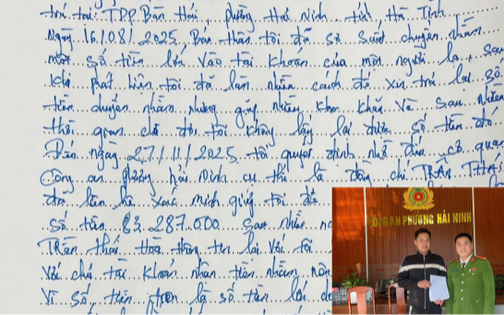 trú tại: TDP Bắc Hải, phường Hải Ninh tỉnh Hà Tĩnh
Ngày 16/08/2025. Bản thân tôi đã sơ suất chuyển nhầm
một số tiền lớn vào tài khoản của một người lạ, sau
khi phát hiện tôi đã làm nhiều cách để xin trả lại số
tiền chuyển nhầm nhưng gặp nhiều khó khăn và sau nhiều
thời gian chờ đợi tôi không lấy lại được số tiền đó
Đến ngày 27/11/2025 tôi quyết định nhờ đến cơ quan
Công an phường Hải Ninh cụ thể là đồng chí Trần Thái
đã xác minh giúp tôi
số tiền 83.287.000 sau nhiều
Trần Thái Hoà thông tin lại với tôi
với chủ tài khoản nhận tiền nhầm
Vì số tiền trên là số tiền lớn
CÔNG AN PHƯỜNG HẢI NINH